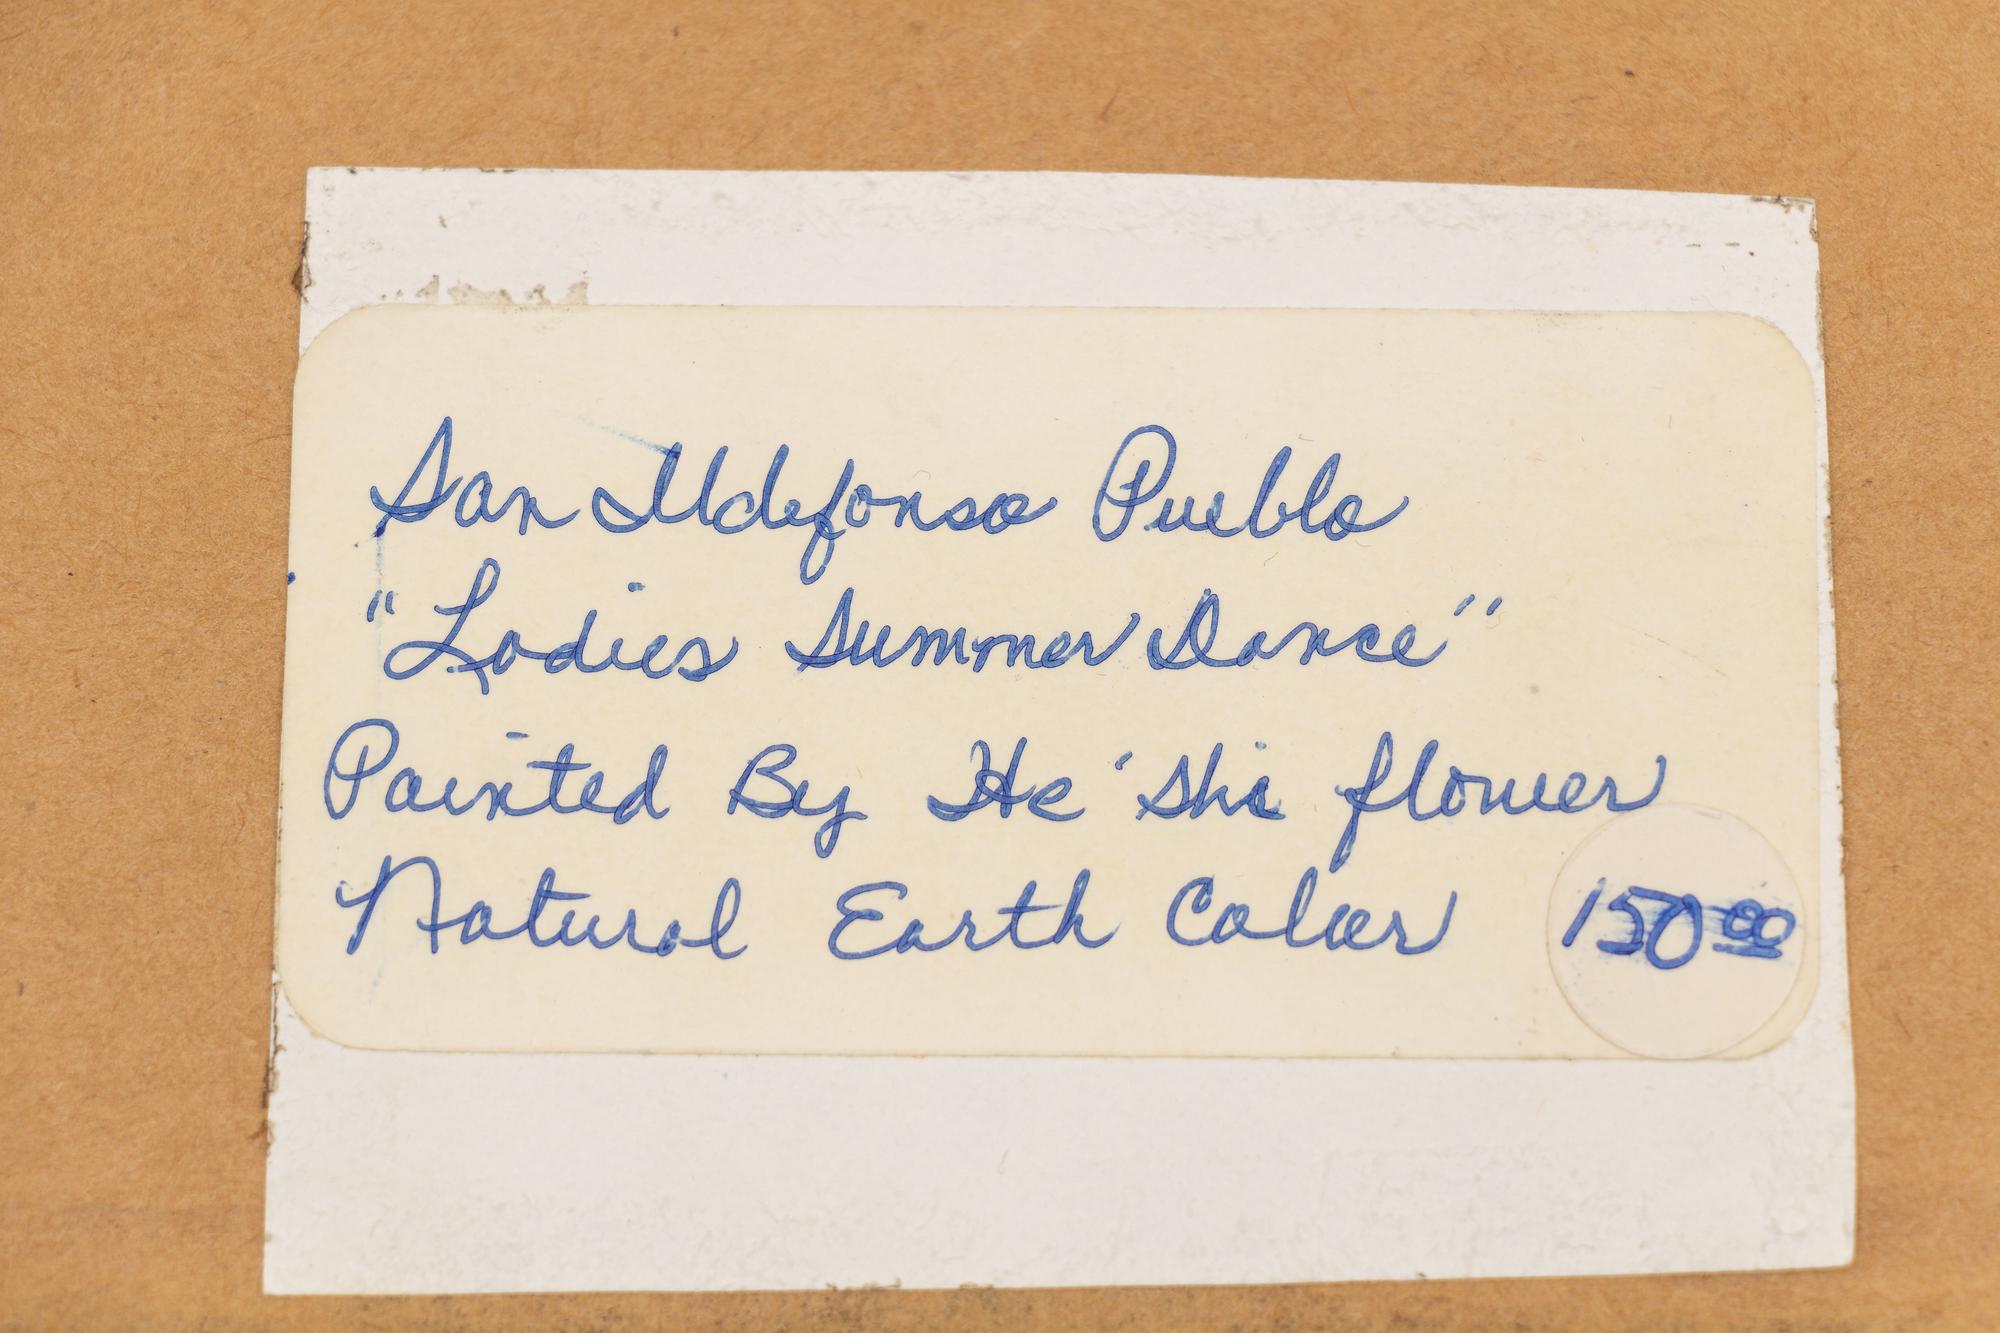 San Ildefonso Pueblo
"Ladies Summer Dance"
Painted By He'shi flower
Natural Earth Color
150.00